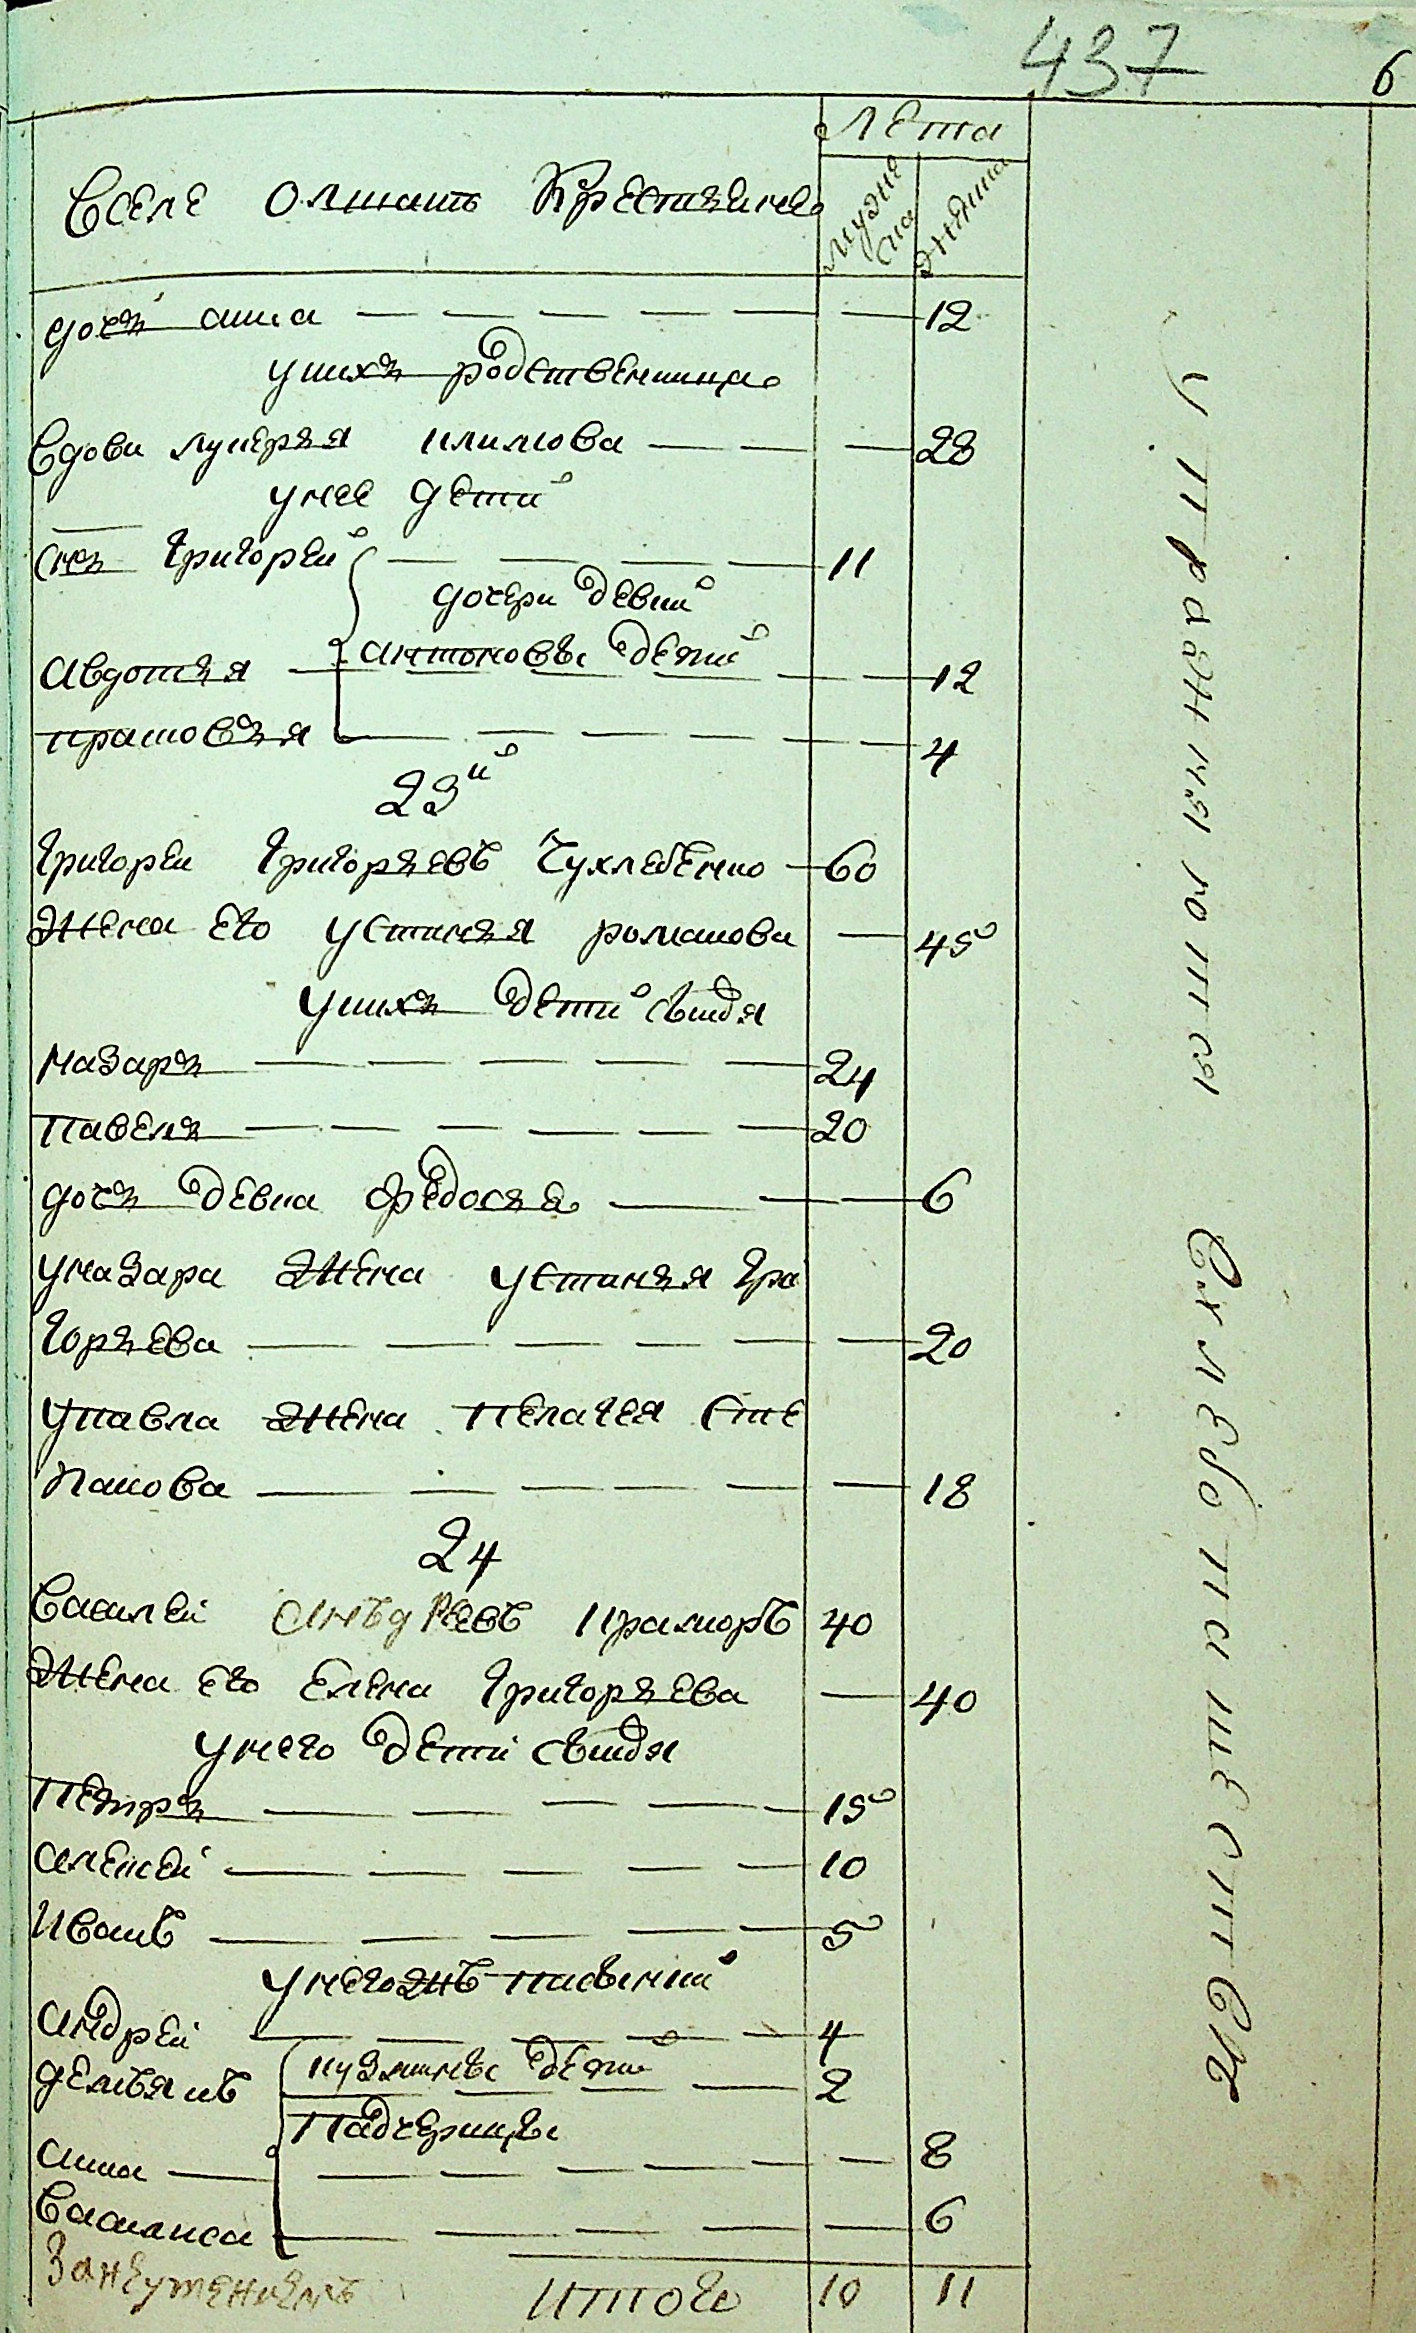 437
6
Лета
Вселе Олшать Крестьянев
мужеска
женска
дочь анна 12
унихъ родственница
вдова лукерья климова 28
унее дети
снъ григорей 11
дочери девки
антоновы дети
авдотья 12
прасковья 4
23й
григореи григорьевъ Чухлебенко 60
жена его устинья романова 45
унихъ дети свидя
назаръ 24
павелъ 20
дочь девка федосья 6
уназара жена устинья гри
горьева 20
упавла жена пелагея сте
панова 18
24
василей анъдреевъ крамаръ 40
жена его елена григорьева 40
унего дети свидя
петръ 15
алексей 10
иванъ 5
унегожъ пасынки
андрей 4
кузмины дети
демьянъ 2
падчерицы
анна 8
василиса 6
итого 10 11